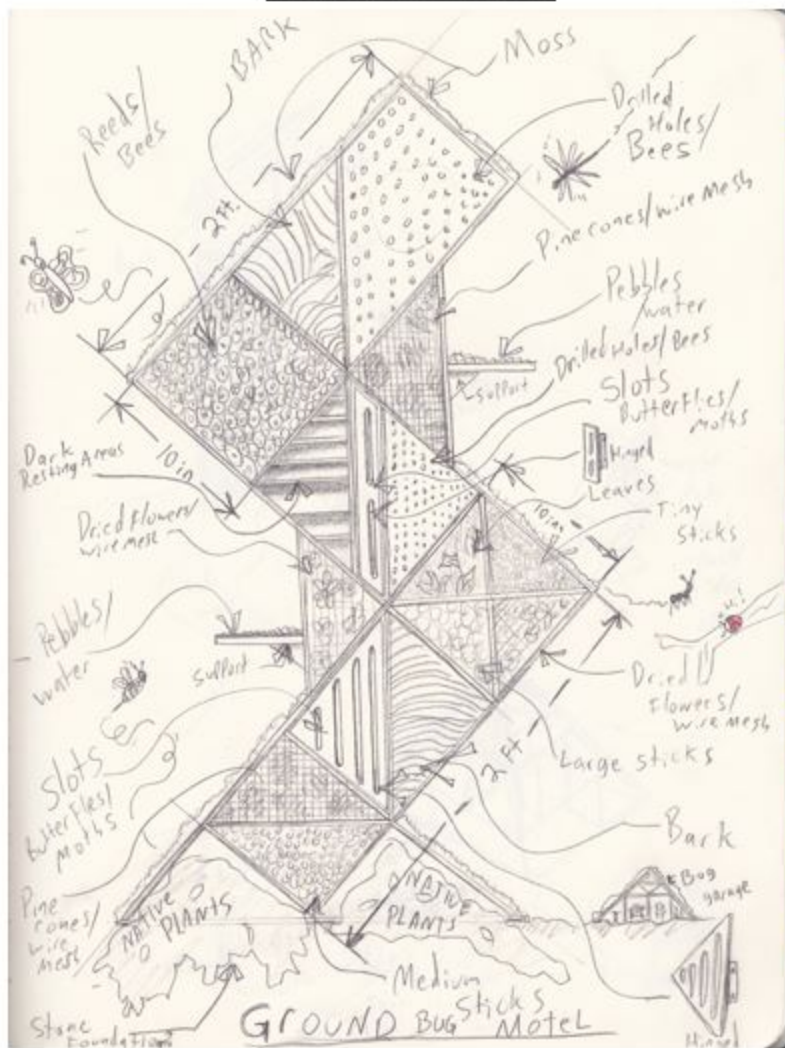 BARK
Moss
Reeds/
Bees
Drilled
Holes/
Bees
2 Ft.
Pine cones/wire mesh
Pebbles
/water
Drilled Holes/Bees
Support
Slots
Butterflies/
moths
Hinged
Dark
Resting Areas
10 in
Leaves
10 in
Tiny
Sticks
Dried Flowers/
wire mesh
Pebbles/
water
Support
Dried
Flowers/
wire mesh
Slots
Butterflies/
moths
2 Ft
Large sticks
Bark
Bug
garage
Pine
cones/
wire
mesh
NATIVE
PLANTS
NATIVE
PLANTS
Medium
Sticks
Stone
Foundation
GROUND BUG MOTEL
Hinged